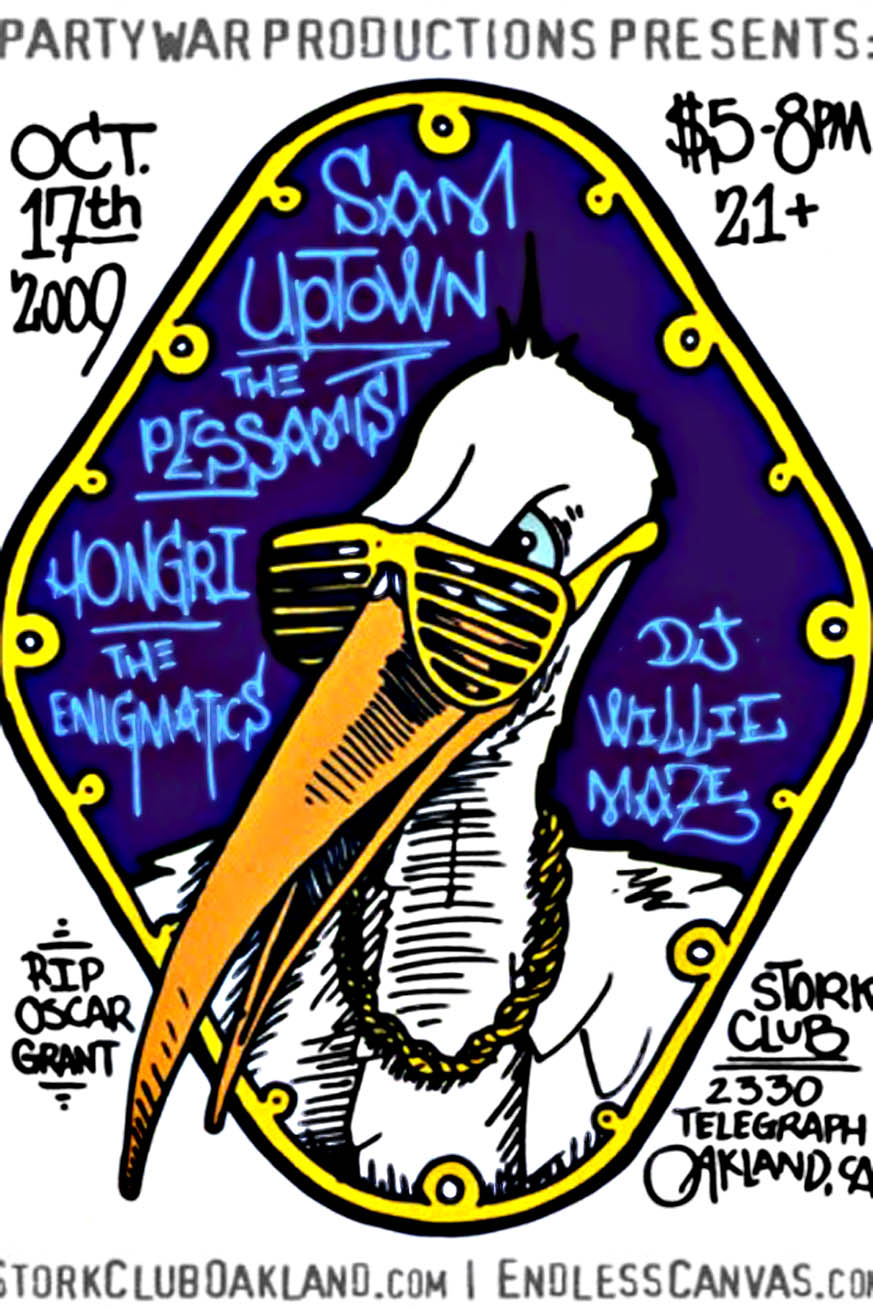 PARTYWAR PRODUCTIONS PRESENTS:
OCT.
17th
2009
$5-8PM
21+
SAM
UPTOWN
THE
PESSAMIST
HONGRI
THE
ENIGMATICS
DJ
WILLIE
MAZE
RIP
OSCAR
GRANT
STORK
CLUB
2330
TELEGRAPH
OAKLAND, CA
STORKCLUBOAKLAND.COM | ENDLESSCANVAS.COM